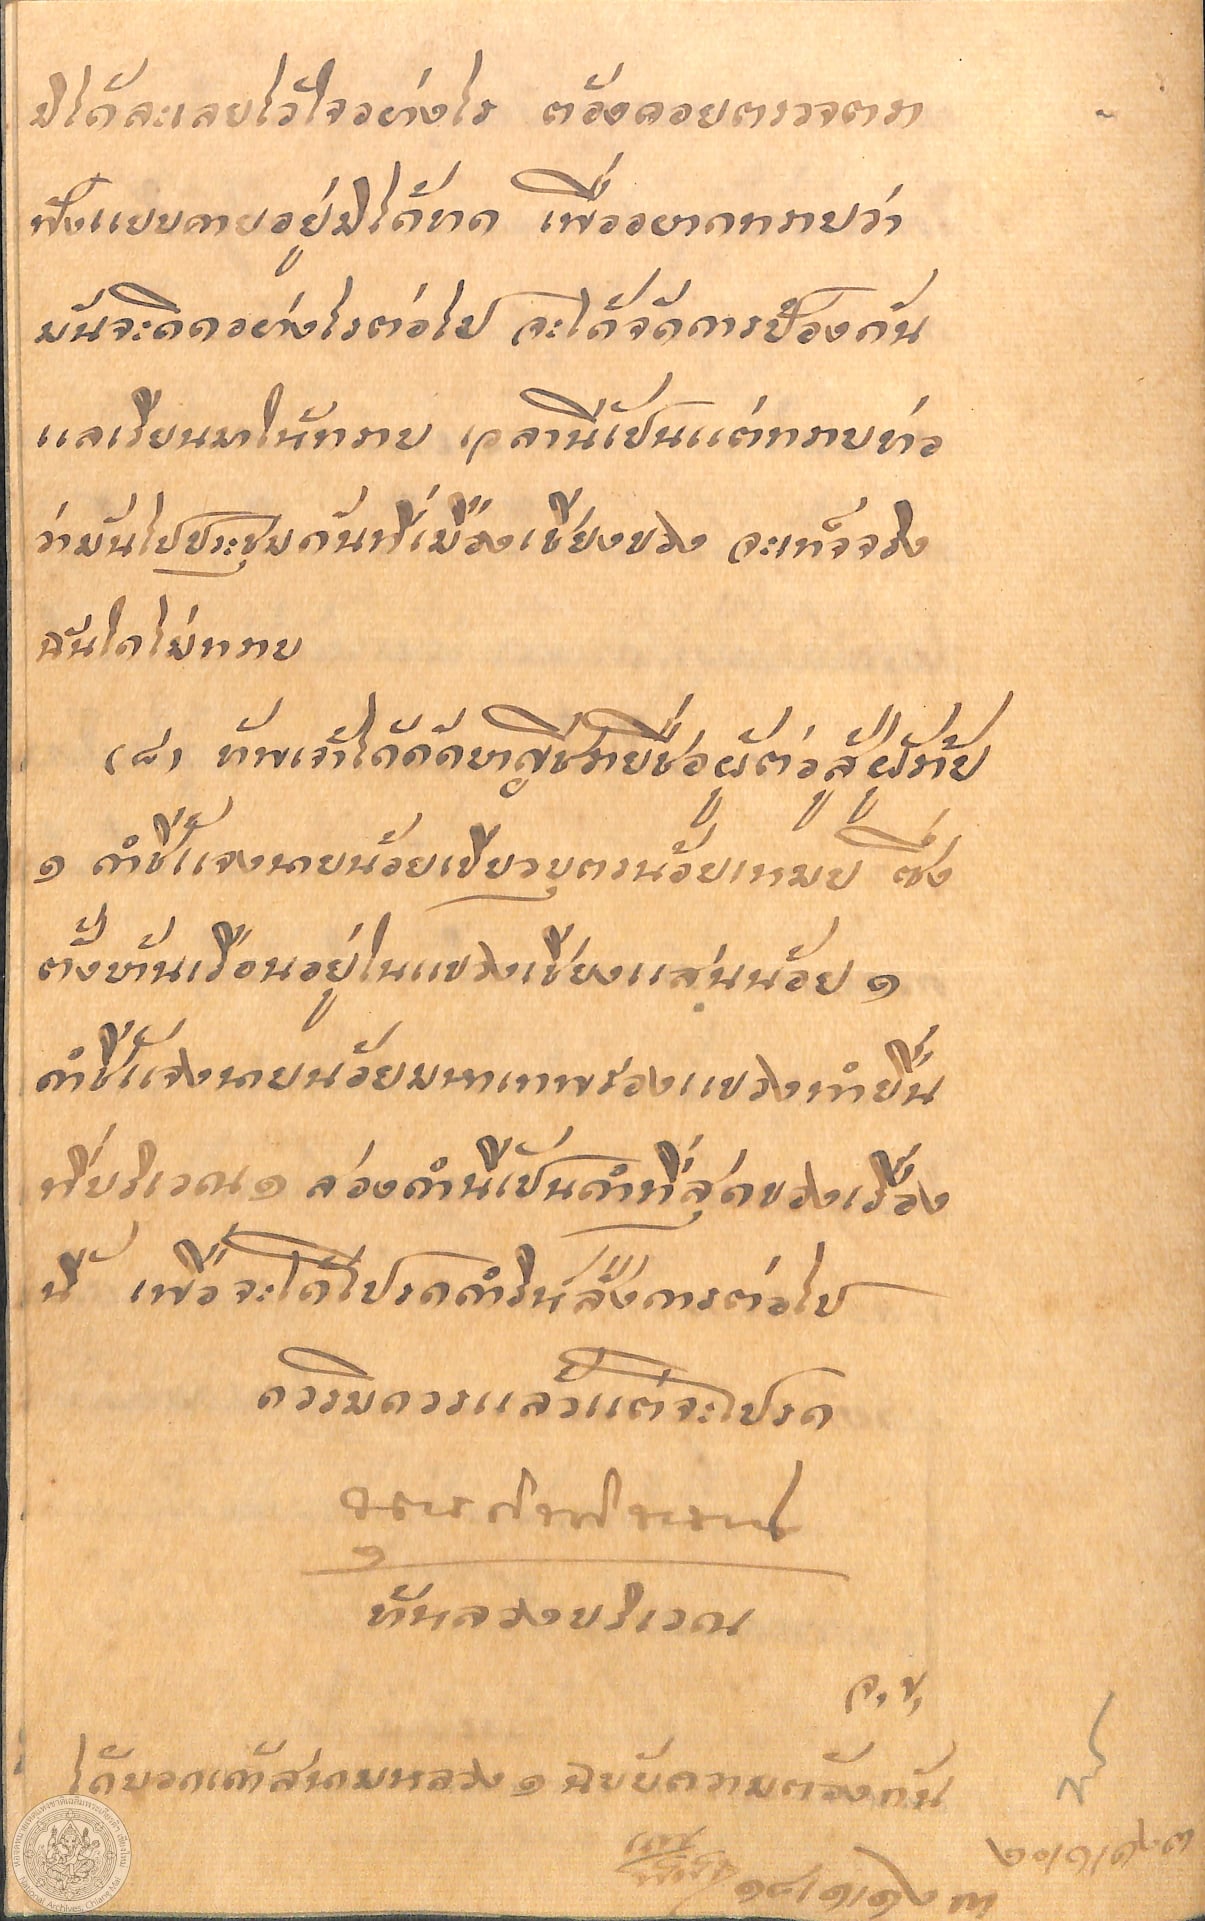 มิได้ละเลยไว้ใจอย่างไร ต้องคอยตรวจตรา
ฟังแยบคายอยู่มิได้ขาด เพื่ออยากทราบว่า
มันจะคิดอย่างไรต่อไป จะได้จัดการป้องกัน
แลเรียนมาให้ทราบ เวลานี้เป็นแต่ทราบข่าว
ว่ามันไปประชุมกันที่เมืองเชียงของ จะเท็จจริง
ฉันใดไม่ทราบ
(๘) ข้าพเจ้าได้คัดบาญชีรายชื่อผู้ต่อสู้ผู้ร้าย
๑ คำชี้แจงนายน้อยเขียวบุตรน้อยเทมย ซึ่ง
ตั้งบ้านเรือนอยู่ในแขวงเชียงแสนน้อย ๑
คำชี้แจงนายน้อยมหาเทพรองแขวงทำยื่น
ที่บริเวณ ๑ สองคำนี้เป็นคำที่สุดของเรื่อง
นี้ เพื่อจะได้โปรดดำริห์สั่งการต่อไป
ควรมิควรแล้วแต่จะโปรด
ข้าหลวงบริเวณ
จ, ช,
ได้บอกเค้าสนามหลวง ๑ ฉบับความต้องกัน
National Archives, Chiang Mai